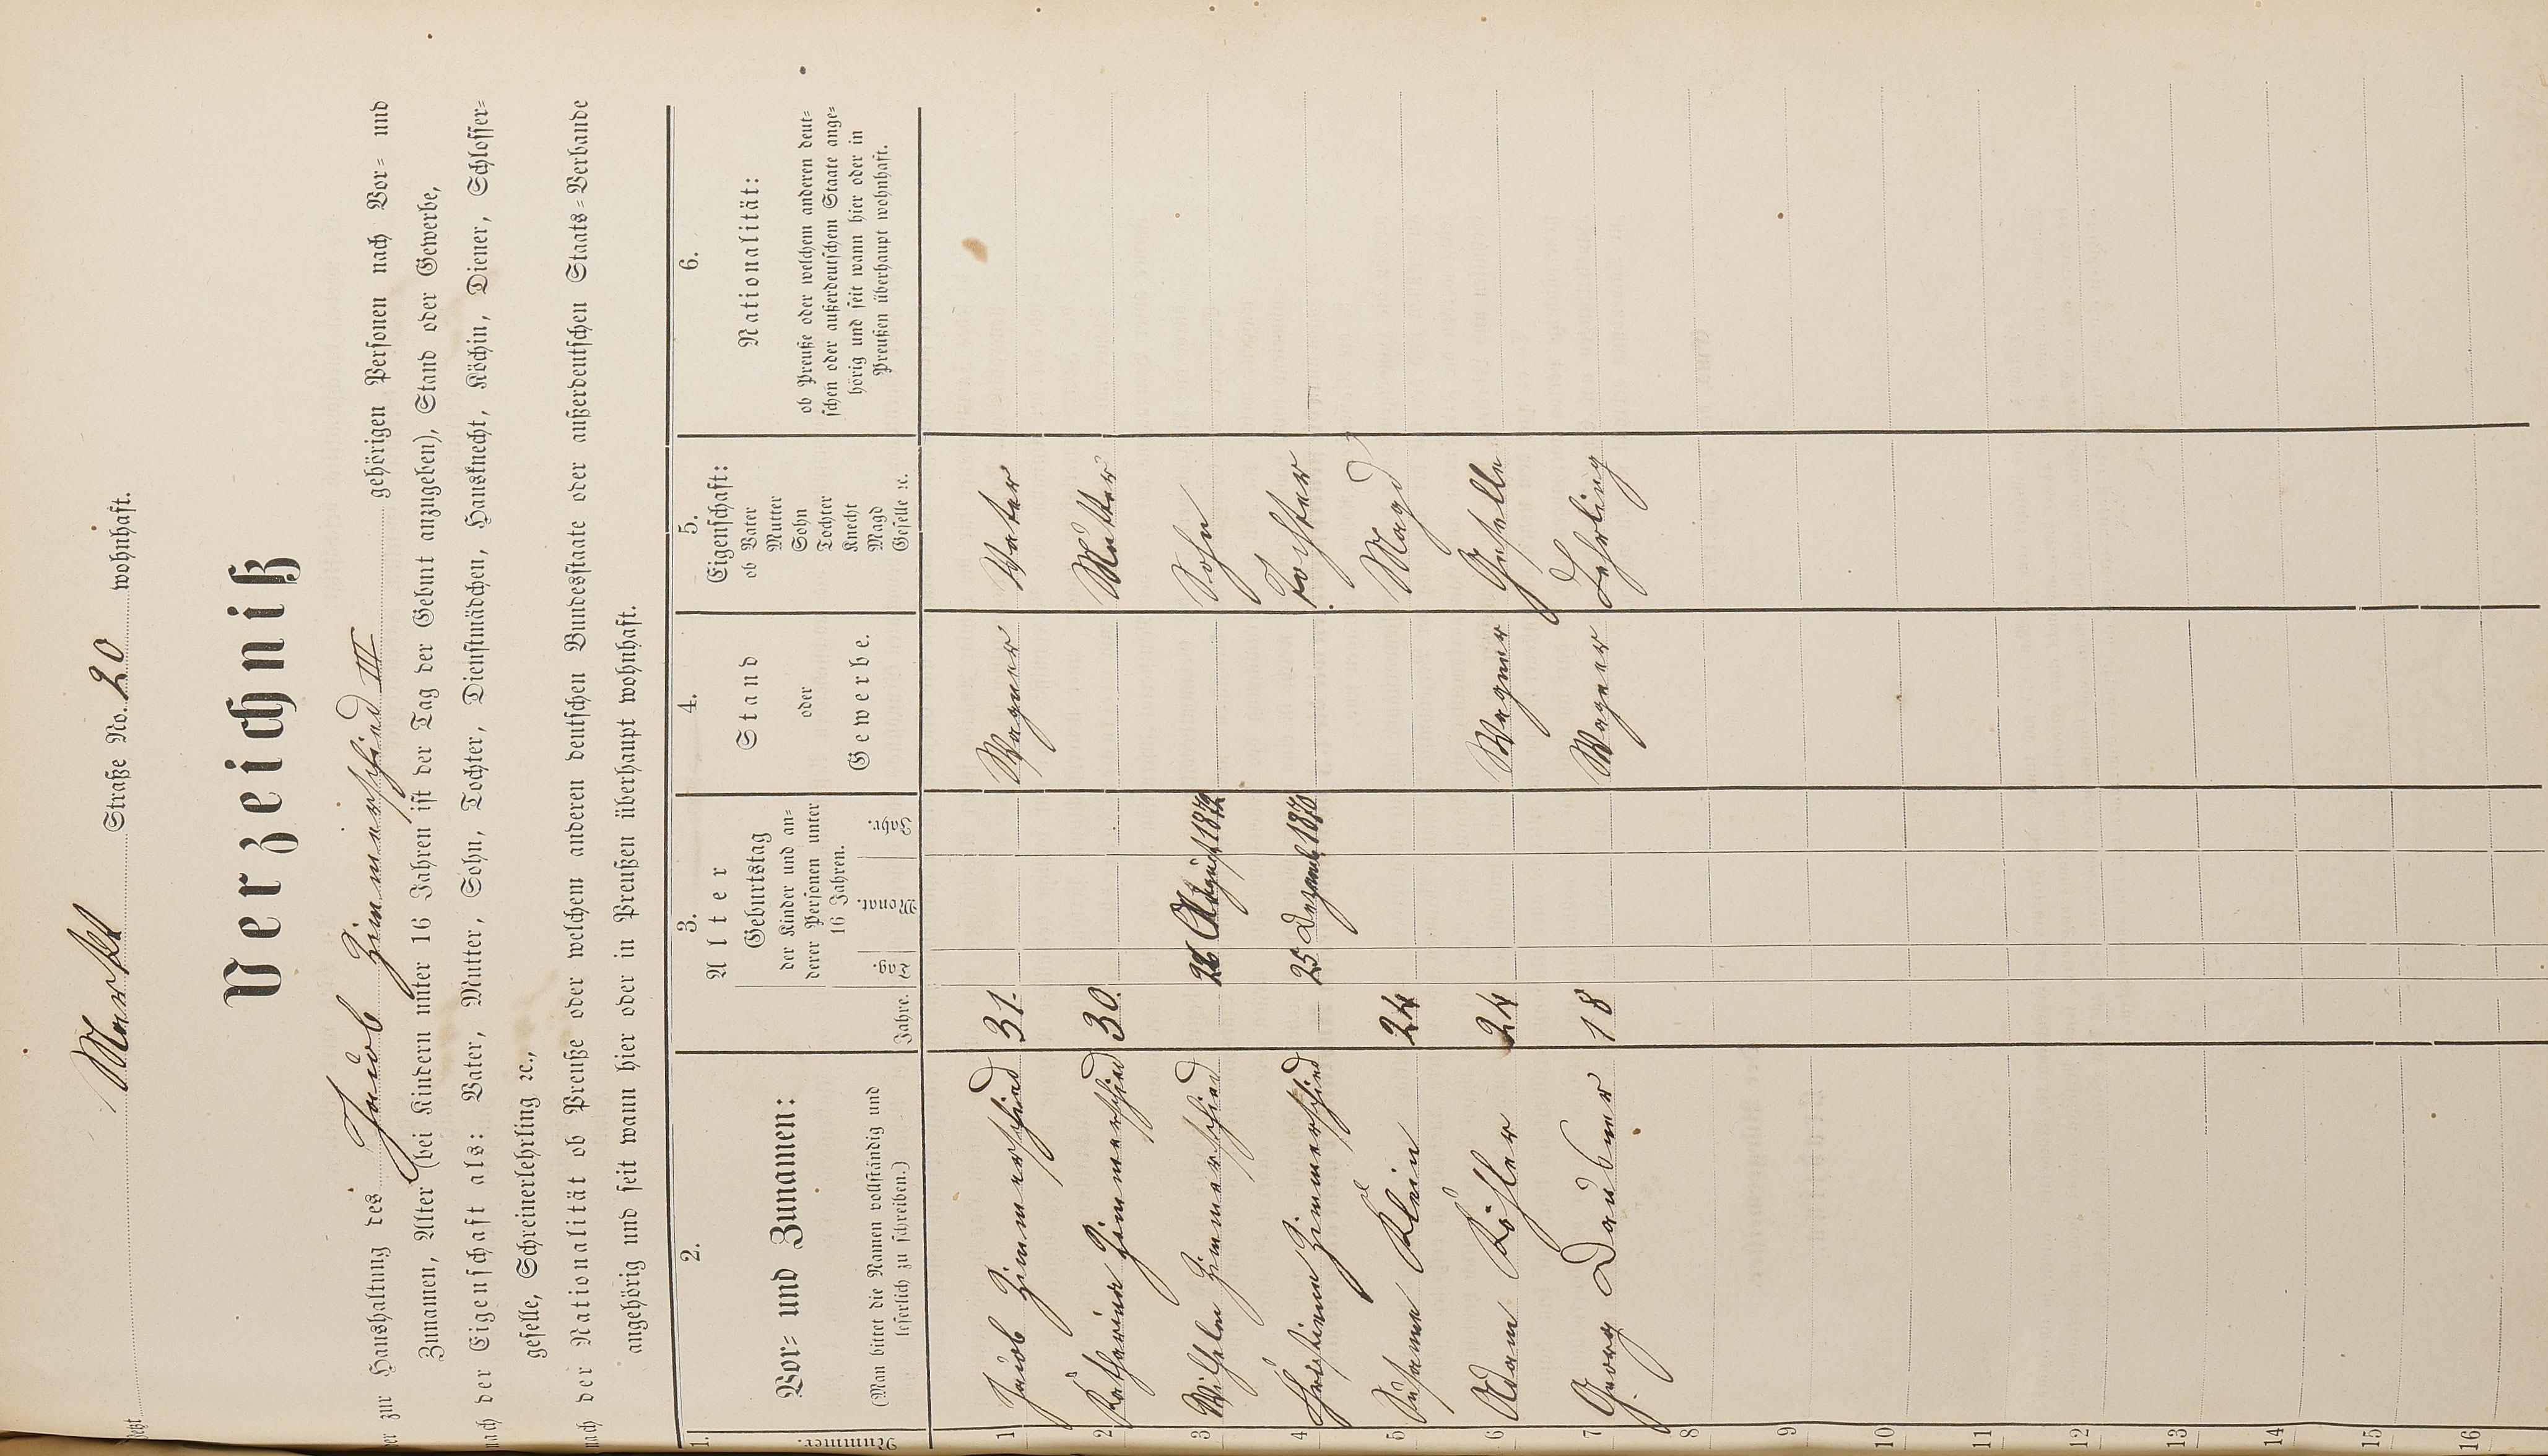 Jetzt Markt Straße No. 20 wohnhaft.
Verzeichniß
der zur Haushaltung des Jacob Zimmerschied III gehörigen Personen nach Vor- und
Zunamen, Alter (bei Kindern unter 16 Jahren ist der Tag der Geburt anzugeben), Stand oder Gewerbe,
nach der Eigenschaft als: Vater, Mutter, Sohn, Tochter, Dienstmädchen, Hausknecht, Köchin, Diener, Schlosser-
geselle, Schreinerlehrling ꝛc.,
nach der Nationalität ob Preuße oder welchem anderen deutschen Bundesstaate oder außerdeutschen Staats-Verbande
angehörig und seit wann hier oder in Preußen überhaupt wohnhaft.
1. 2. 3. 4. 5. 6.
Nummer.
Vor- und Zunamen:
(Man bittet die Namen vollständig und
leserlich zu schreiben.)
Alter
Jahre.
Geburtstag
der Kinder und an-
derer Personen unter
16 Jahren.
Tag. Monat. Jahr.
Stand
oder
Gewerbe.
Eigenschaft:
ob Vater
Mutter
Sohn
Tochter
Knecht
Magd
Geselle ꝛc.
Nationalität:
ob Preuße oder welchem anderen deut-
schen oder außerdeutschem Staate ange-
hörig und seit wann hier oder in
Preußen überhaupt wohnhaft.
1 Jacob Zimmerschied 31. Wagner Vater
2 Katharina Zimmerschied 30. Mutter
3 Wilhelm Zimmerschied August Sohn
4 Christiane Zimmerschied 25 Dezemb 1870 Tochter
5 Susanne Klein 24 Magd
6 Adam Köhler 24 Wagner Geselle
7 Georg Daubner 18 Wagner Lehrling
8
9
10
11
12
13
14
15
16